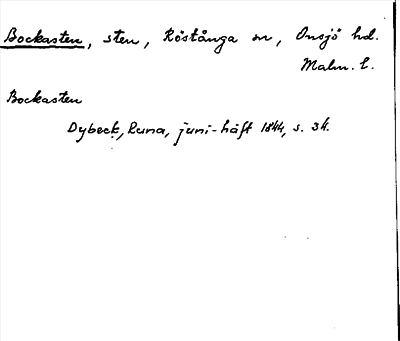 Bockasten, sten, Röstånga sn, Onsjö hd.
Malm. l.
Bockasten
Dybeck, Runa, juni-häft 1844, s. 34.